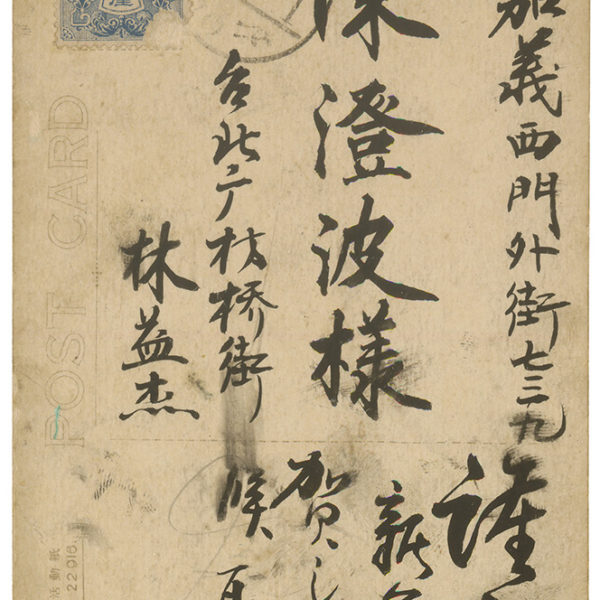 嘉義西門外街七三九
陳澄波様
台北庁枋橋街
林益杰
謹
新年
賀
候
POST CARD